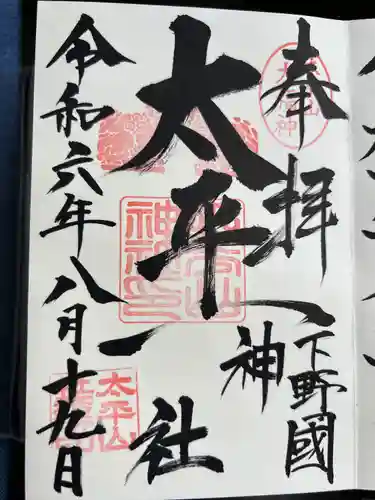 奉拝
下野國
太平山神社
令和六年八月十九日
太平山
神社